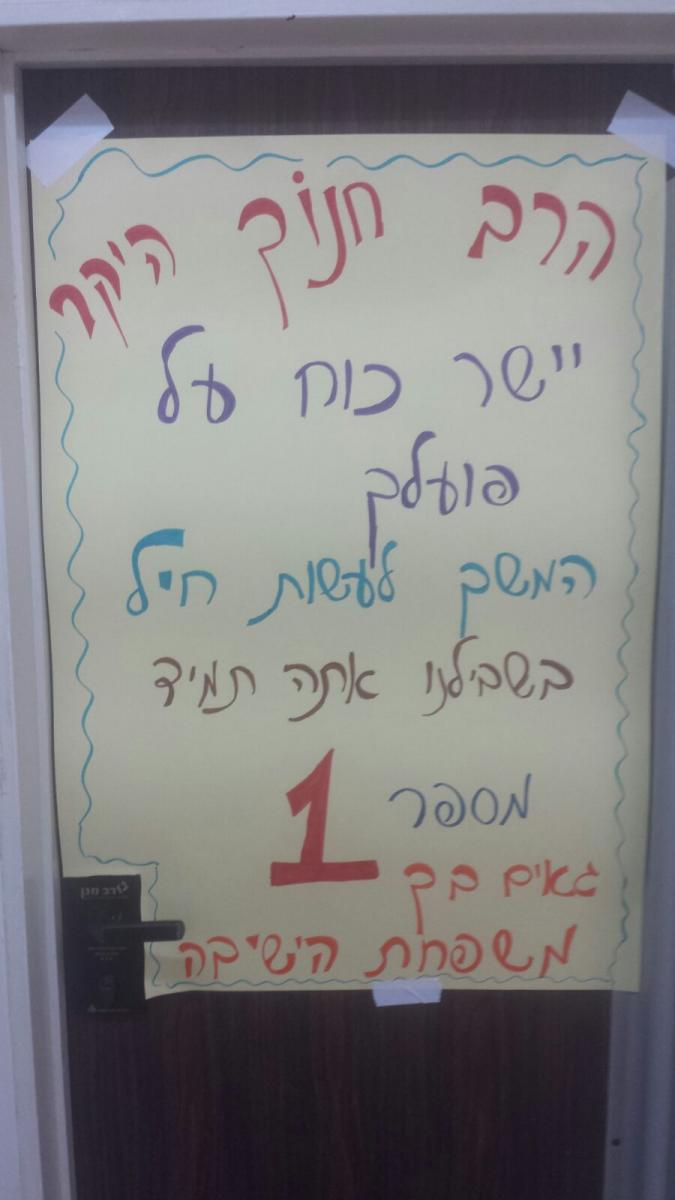 הרב חנוֹך היקר
יישר כוח על
פועלך
המשך לעשות חיל
בשבילנו אתה תמיד
מספר 1
גאים בך
משפחת הישיבה
רב מגן